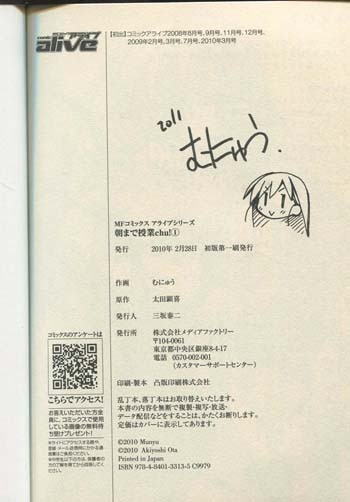 コミックアライブ
alive
【初出】コミックアライブ2008年8月号、9月号、11月号、12月号、
2009年2月号、3月号、7月号、2010年3月号
2011
むにゅう.
MFコミックス アライブシリーズ
朝まで授業chu!①
発行 2010年 2月28日 初版第一刷発行
作画 むにゅう
原作 太田顕喜
発行人 三坂泰二
発行所 株式会社メディアファクトリー
〒104-0061
東京都中央区銀座8-4-17
電話 0570-002-001
(カスタマーサポートセンター)
印刷・製本 凸版印刷株式会社
乱丁本、落丁本はお取り替えいたします。
本書の内容を無断で複製・複写・放送・
データ配信などをすることは、かたくお断りします。
定価はカバーに表示してあります。
©2010 Munyu
©2010 Akiyoshi Ota
Printed in Japan
ISBN 978-4-8401-3313-5 C9979
コミックスのアンケートは
こちらでアクセス!
お答えいただいた方全
員に、コミックスで使用
している画像の無料待
ち受けプレゼント!